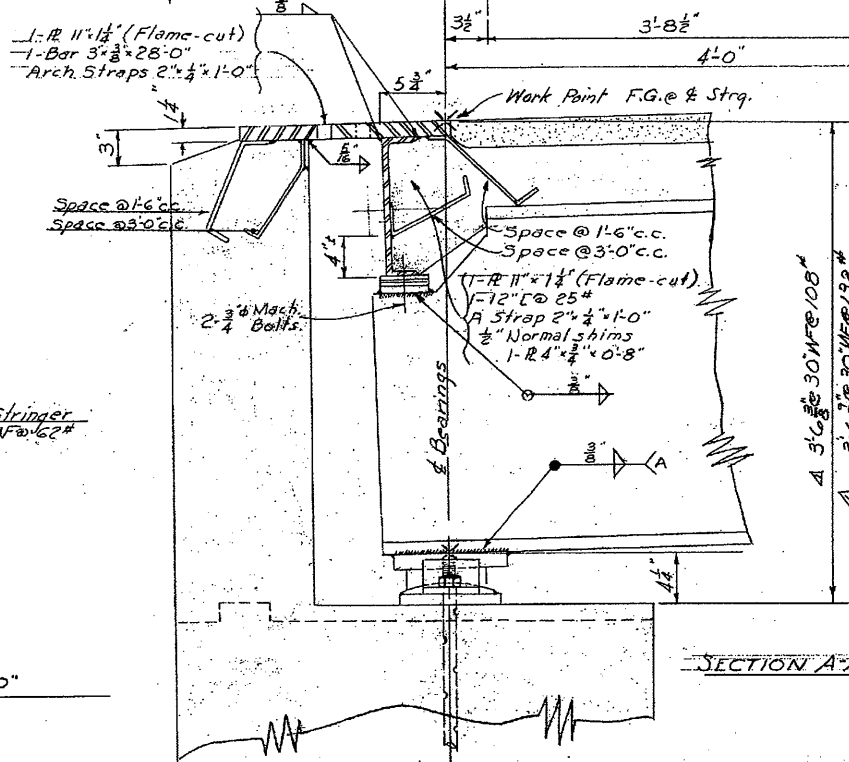 8
3½"
3'-8½"
1-℞ 11"x1¼" (Flame-cut)
1-Bar 3"x⅜"x28'-0"
Arch Straps 2"x¼"x1'-0"
4'-0"
5¾"
Work Point F.G.@ ℄ Strg.
1¼"
3"
5/16"
Space @ 1'-6" c.c.
Space @ 3'-0" c.c.
Space @ 1'-6" c.c.
Space @ 3'-0" c.c.
4"±
1-℞ 11"x1¼" (Flame-cut)
1-12"[@ 25#
A Strap 2"x¼"x1'-0"
½" Normal shims
1-℞ 4"x¾"x0'-8"
2-¾"ϕ Mach.
Bolts
⅜"
℄ Bearings
Stringer
WF@62#
⅜"
A
3'-6⅜"@30"WF@108#
4¼"
SECTION A-A
0"